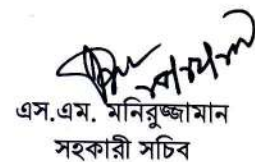 এস.এম. মনিরুজ্জামান
সহকারী সচিব